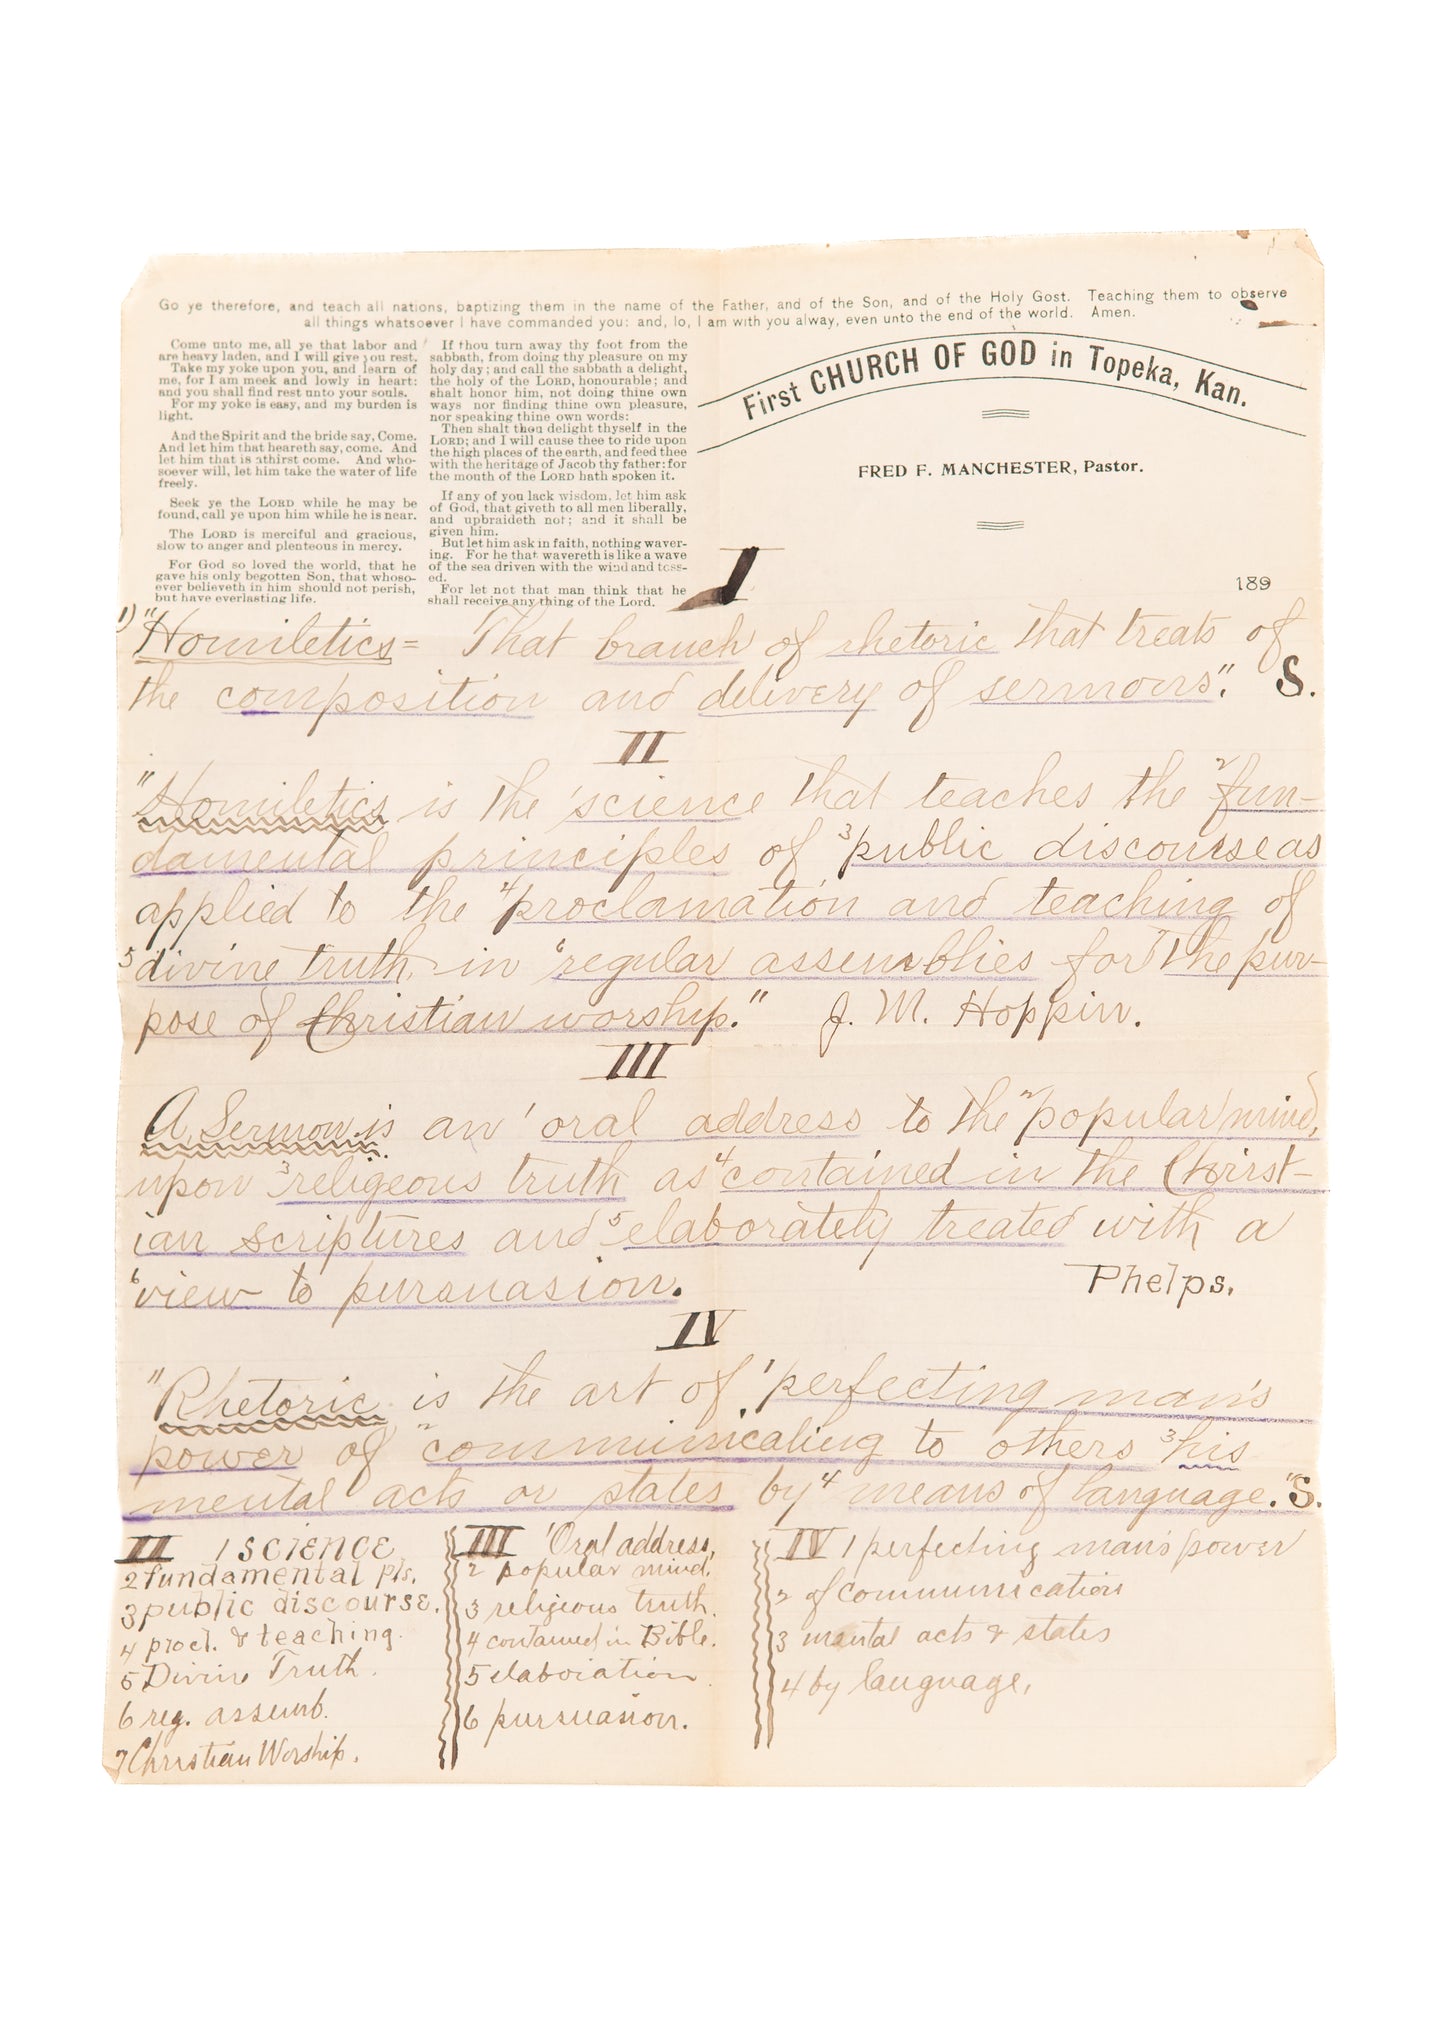 Go ye therefore, and teach all nations, baptizing them in the name of the Father, and of the Son, and of the Holy Gost. Teaching them to observe
all things whatsoever I have commanded you: and, lo, I am with you alway, even unto the end of the world. Amen.
Come unto me, all ye that labor and
are heavy laden, and I will give you rest.
Take my yoke upon you, and learn of
me, for I am meek and lowly in heart:
and you shall find rest unto your souls.
For my yoke is easy, and my burden is
light.
And the Spirit and the bride say, Come.
And let him that heareth say, come. And
let him that is athirst come. And who-
soever will, let him take the water of life
freely.
Seek ye the LORD while he may be
found, call ye upon him while he is near.
The LORD is merciful and gracious,
slow to anger and plenteous in mercy.
For God so loved the world, that he
gave his only begotten Son, that whoso-
ever believeth in him should not perish,
but have everlasting life.
If thou turn away thy foot from the
sabbath, from doing thy pleasure on my
holy day; and call the sabbath a delight,
the holy of the LORD, honourable; and
shalt honor him, not doing thine own
ways nor finding thine own pleasure,
nor speaking thine own words:
Then shalt thou delight thyself in the
LORD; and I will cause thee to ride upon
the high places of the earth, and feed thee
with the heritage of Jacob thy father: for
the mouth of the LORD hath spoken it.
If any of you lack wisdom, let him ask
of God, that giveth to all men liberally,
and upbraideth not; and it shall be
given him.
But let him ask in faith, nothing waver-
ing. For he that wavereth is like a wave
of the sea driven with the wind and toss-
ed.
For let not that man think that he
shall receive any thing of the Lord.
First CHURCH OF GOD in Topeka, Kan.
FRED F. MANCHESTER, Pastor.
189
I
1) "Homiletics = That branch of rhetoric that treats of
the composition and delivery of sermons". S.
II
"Homiletics is the 'science that teaches the 2 fun-
damental principles of 3 public discourse as
applied to the 4 proclamation and teaching of
5 divine truth, in 6 regular assemblies for 7 the pur-
pose of Christian worship." J. M. Hoppin.
III
A Sermon is an 1 oral address to the 2 popular mind,
upon 3 religeous truth as 4 contained in the Christ-
ian scriptures and 5 elaborately treated with a
6 view to pursuasion. Phelps.
IV
"Rhetoric is the art of 1 perfecting man's
power of 2 communicating to others 3 his
mental acts or states by 4 means of language." S.
II 1 science
2 fundamental pls.
3 public discourse.
4 procl. & teaching.
5 Divine Truth.
6 reg. assemb.
7 Christian Worship.
III 1 Oral address,
2 popular mind.
3 religious truth.
4 contained in Bible.
5 elaboration
6 pursuasion.
IV 1 perfecting man's power
2 of communication
3 mental acts & states
4 by language,